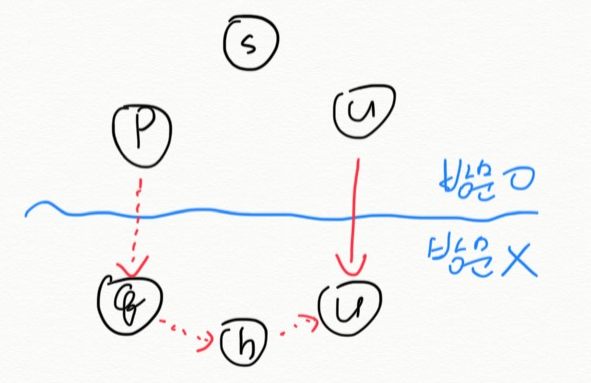 s
P
u
방문 O
방문 X
u
h